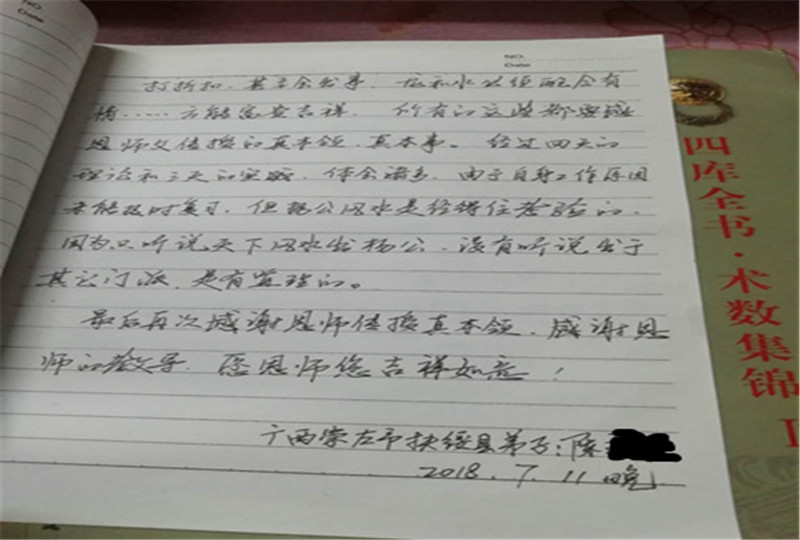 NO.
Date
NO.
Date
打折扣、甚至会出事、龙和水必须配合有
情……方能富贵吉祥。所有的这些都要感
恩师父传授的真本领、真本事。经过四天的
理论和三天的实践、体会诸多、由于自身工作原因
未能及时复习、但杨公风水是经得住考验的、
因为只听说天下风水出杨公、没有听说出于
其它门派、是有道理的。
最后再次感谢恩师传授真本领、感谢恩
师的教导、愿恩师您吉祥如意！
广西崇左市扶绥县弟子：陈
2018.7.11晚
四库全书·术数集锦 I